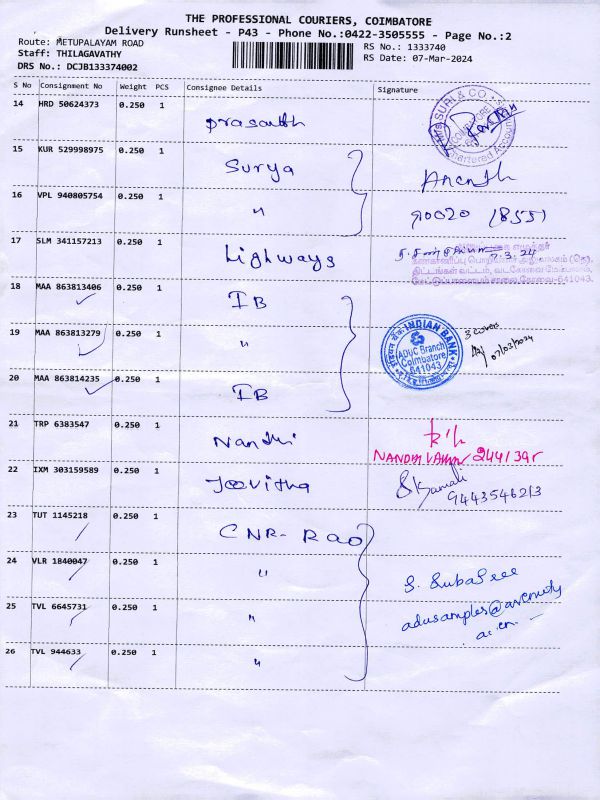 THE PROFESSIONAL COURIERS, COIMBATORE
Delivery Runsheet - P43 - Phone No.:0422-3505555 - Page No.:2
Route: METUPALAYAM ROAD
Staff: THILAGAVATHY
DRS No.: DCJB133374002
RS No.: 1333740
RS Date: 07-Mar-2024
S No Consignment No Weight PCS Consignee Details Signature
14 HRD 50624373 0.250 1
prasanth
SURI & CO
COIMBATORE
Chartered Accountants
15 KUR 529998975 0.250 1
Surya
Ananth
16 VPL 940805754 0.250 1
"
90020 18551
17 SLM 341157213 0.250 1
Highways
7.3.24
கண்காணிப்பு பொறியாளர் அலுவலகம் (நெ),
திட்டங்கள் வட்டம்,
மேட்டுப்பாளையம் சாலை, கோவை-641043.
18 MAA 863813406 0.250 1
IB
19 MAA 863813279 0.250 1
"
INDIAN BANK
ADUC Branch
Coimbatore
641043
3 covers
07/03/2024
20 MAA 863814235 0.250 1
IB
21 TRP 6383547 0.250 1
Nandhi
244/39r
22 IXM 303159589 0.250 1
Jeevitha
9443546213
23 TUT 1145218 0.250 1
CNR- Rao
24 VLR 1840047 0.250 1
"
S. Subasree
25 TVL 6645731 0.250 1
"
26 TVL 944633 0.250 1
"